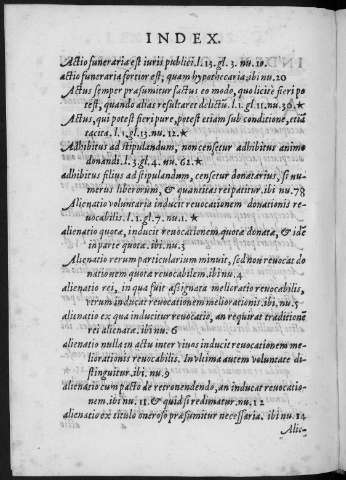 INDEX.
Actio funeraria est iuris publici. l. 13. gl. 3. nu. 18.
actio funeraria fortior est, quam hypothecaria. ibi nu. 20
Actus semper præsumitur factus eo modo, quo licite fieri po
test, quando alias resultaret delictū. l. 1. gl. 11. nu. 36. ★
Actus, qui potest fieri pure, potest etiam sub conditione, etiā
tacita. l. 1. gl. 13. nu. 12. ★
Adhibitus ad stipulandum, non censetur adhibitus animo
donandi. l. 3. gl. 4. nu. 62. ★
adhibitus filius ad stipulandum, censetur donatarius, si nu-
merus liberorum, & quantitas rei patitur. ibi nu. 78
Alienatio voluntaria inducit reuocationem donationis re-
uocabilis. l. 1. gl. 7. nu. 1. ★
alienatio quotæ, inducit reuocationem quotæ donatæ, & idē
in parte quotæ. ibi. nu. 3
Alienatio rerum particularium minuit, sed non reuocat do
nationem quotæ reuocabilem. ibi nu. 4
alienatio rei, in qua fuit assignata melioratio reuocabilis,
verum inducat reuocationem meliorationis. ibi. nu. 5
alienatio ex qua inducitur reuocatio, an requirat traditionē
rei alienatæ. ibi nu. 6
alienatio nulla an actu inter viuos inducit reuocationem me-
liorationis reuocabilis. In vltima autem voluntate di-
stinguitur. ibi. nu. 9
alienatio cum pacto de retrouendendo, an inducat reuocatio-
nem. ibi nu. 11. & quid si redimatur. nu. 12
alienatio ex titulo oneroso præsumitur necessaria. ibi nu. 14
Alie-